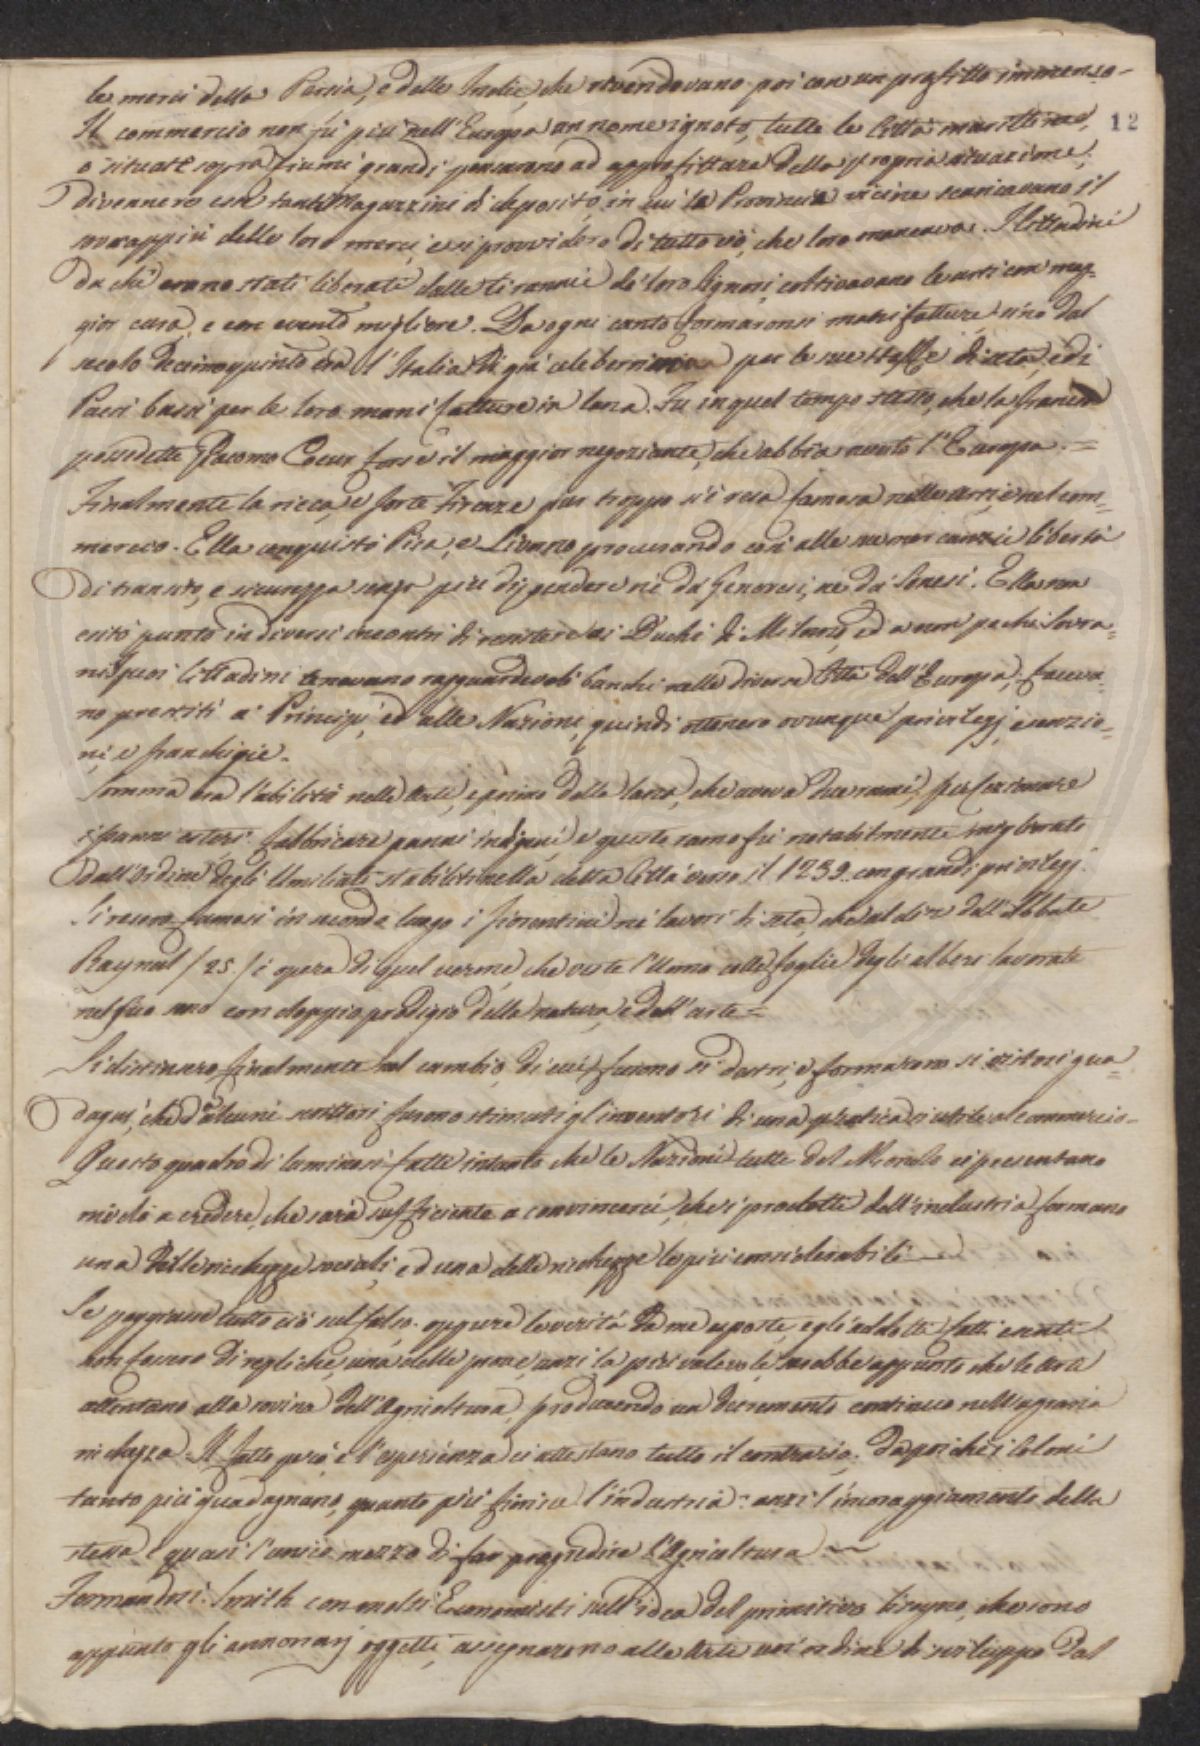 le merci della Persia, e delle Indie, che rivendevano poi con un profitto immenso.
Il commercio non fù più nell'Europa un nome ignoto, tutte le Città marittime, 12
o situate sopra fiumi grandi pensarono ad approfittare della propria situazione,
divennero così tanti Magazzini di deposito, in cui le Provincie vicine scaricavano il
sovrappiù delle loro merci, e si provvidero di tutto ciò, che loro mancava. I Cittadini
da che erano stati liberati dalle tirannie de' loro Signori, coltivavano le arti con mag-
gior cura, e con evento migliore. Da ogni canto formaronsi manifatture, sino dal
secolo decimoquinto era l'Italia di già celeberrima per le sue stoffe di seta, ed i
Paesi bassi per le loro manifatture in lana. Fu in quel tempo stesso, che la Francia
possedette Giacomo Coeur forse il maggior negoziante, che abbia avuto l'Europa. =
Finalmente la ricca, e forte Firenze pur troppo si è resa famosa nelle arti, e nel com=
mercio. Ella conquistò Pisa, e Livorno procurando così alle sue mercanzie libertà
di transito, e sicurezza senza più dipendere nè da Genovesi, nè da Senesi. Ella non
esitò punto in diversi incontri di resistere ai Duchi di Milano, ed a non pochi Sovra=
ni. I suoi Cittadini tenevano ragguardevoli banchi nelle diverse Città dell'Europa, faceva=
no prestiti a' Principi, ed alle Nazioni, quindi ottenero ovunque privilegj, esenzio=
ni, e franchigie.
Somma era l'abilità nelle Arti, e prima della lana, che aveva due rami, perfezionare
i panni esteri fabbricare panni indigeni, e questo ramo fù notabilmente migliorato
dall'Ordine degli Umiliati stabiliti nella detta Città verso il 1239. con grandi privilegj.
Si resero famosi in secondo luogo i fiorentini nè lavori di seta, che al dire dell'Abbate
Raynal /25./ è opera di quel verme, che veste l'Uomo colle foglie degli alberi lavorate
nel suo seno con doppio prodigio della natura, e dell'arte =
Si distinsero finalmente sul cambio, di cui furono sì dotti, e formarono sì vistosi gua=
dagni, che d'alcuni scrittori furono stimati gl'inventori di una pratica sì utile al commercio.
Questo quadro di luminosi fatti intanto che le Nazioni tutte del Mondo ci presentano
mi dà a credere, che sarà sufficiente a convincerci, che i prodotti dell'industria formano
una delle ricchezze sociali, ed una delle richezze le più considerabili
Se poggiasse tutto ciò sul falso. oppure le verità da me esposte, e gli addotti fatti esenti
non fossero di repliche, una delle prove, anzi la più valevole, sarebbe appunto che le Arti
attentano alla rovina dell'Agricoltura, producendo un decremento continuo nell'agraria
richezza. Il fatto però, e l'esperienza ci attestano tutto il contrario. Dapoichè i Coloni
tanto più guadagnano, quanto più fiorisce l'industria: anzi l'incoraggiamento della
stessa è quasi l'unico mezzo di far progredire l'Agricoltura
Formandosi Smith con molti Economisti sull'idea del primitivo bisogno, che sono
appunto gli annonarj oggetti, assegnarono alle Arti un ordine di sviluppo dal